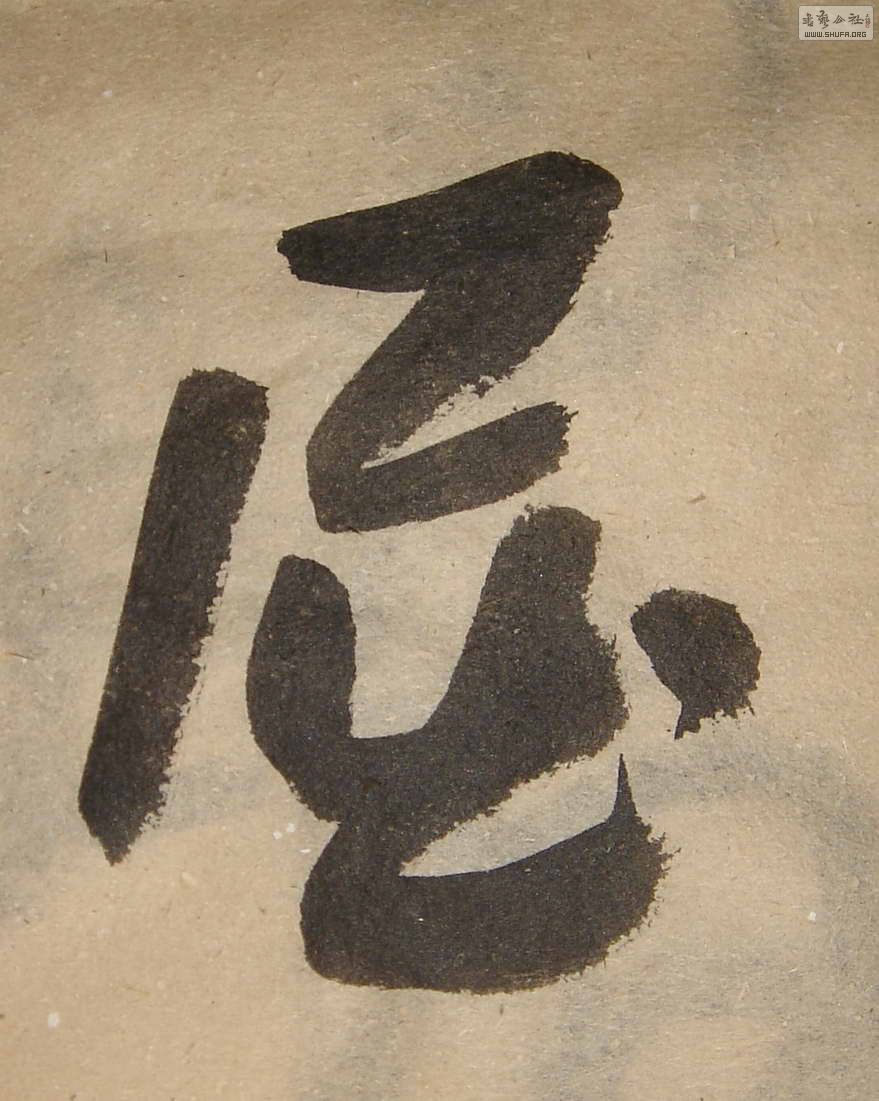 書藝公社
WWW.SHUFA.ORG
屈